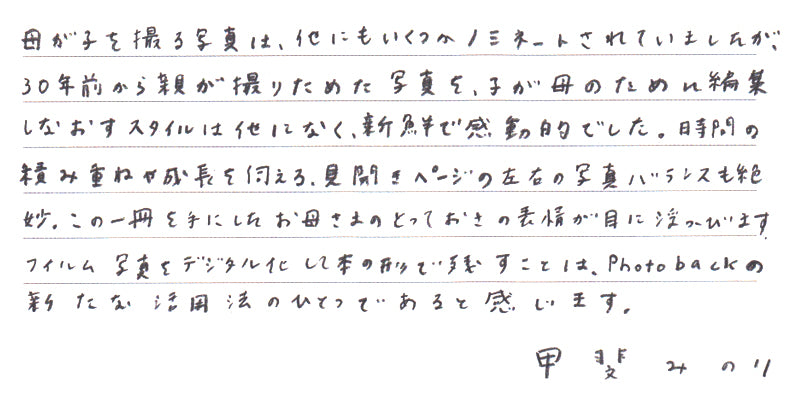 母が子を撮る写真は、他にもいくつかノミネートされていましたが、
30年前から親が撮りためた写真を、子が母のために編集
しなおすスタイルは他になく、新鮮で感動的でした。時間の
積み重ねや成長を伺える、見開きページの左右の写真バランスも絶
妙。この一冊を手にしたお母さまのとっておきの表情が目に浮かびます。
フイルム写真をデジタル化して本の形で残すことは、Photobackの
新たな活用法のひとつであると感じます。
甲斐みのり